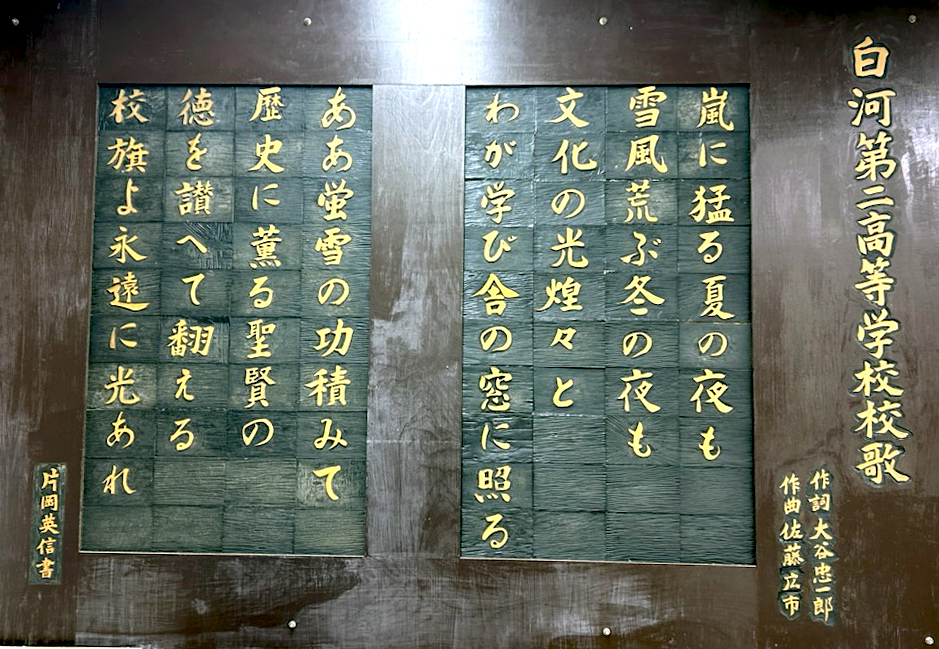 白河第二高等学校校歌
作詞 大谷忠一郎
作曲 佐藤立市
嵐に猛る夏の夜も
雪風荒ぶ冬の夜も
文化の光煌々と
わが学び舎の窓に照る
ああ蛍雪の功積みて
歴史に薫る聖賢の
徳を讃へて翻える
校旗よ永遠に光あれ
片岡英信書